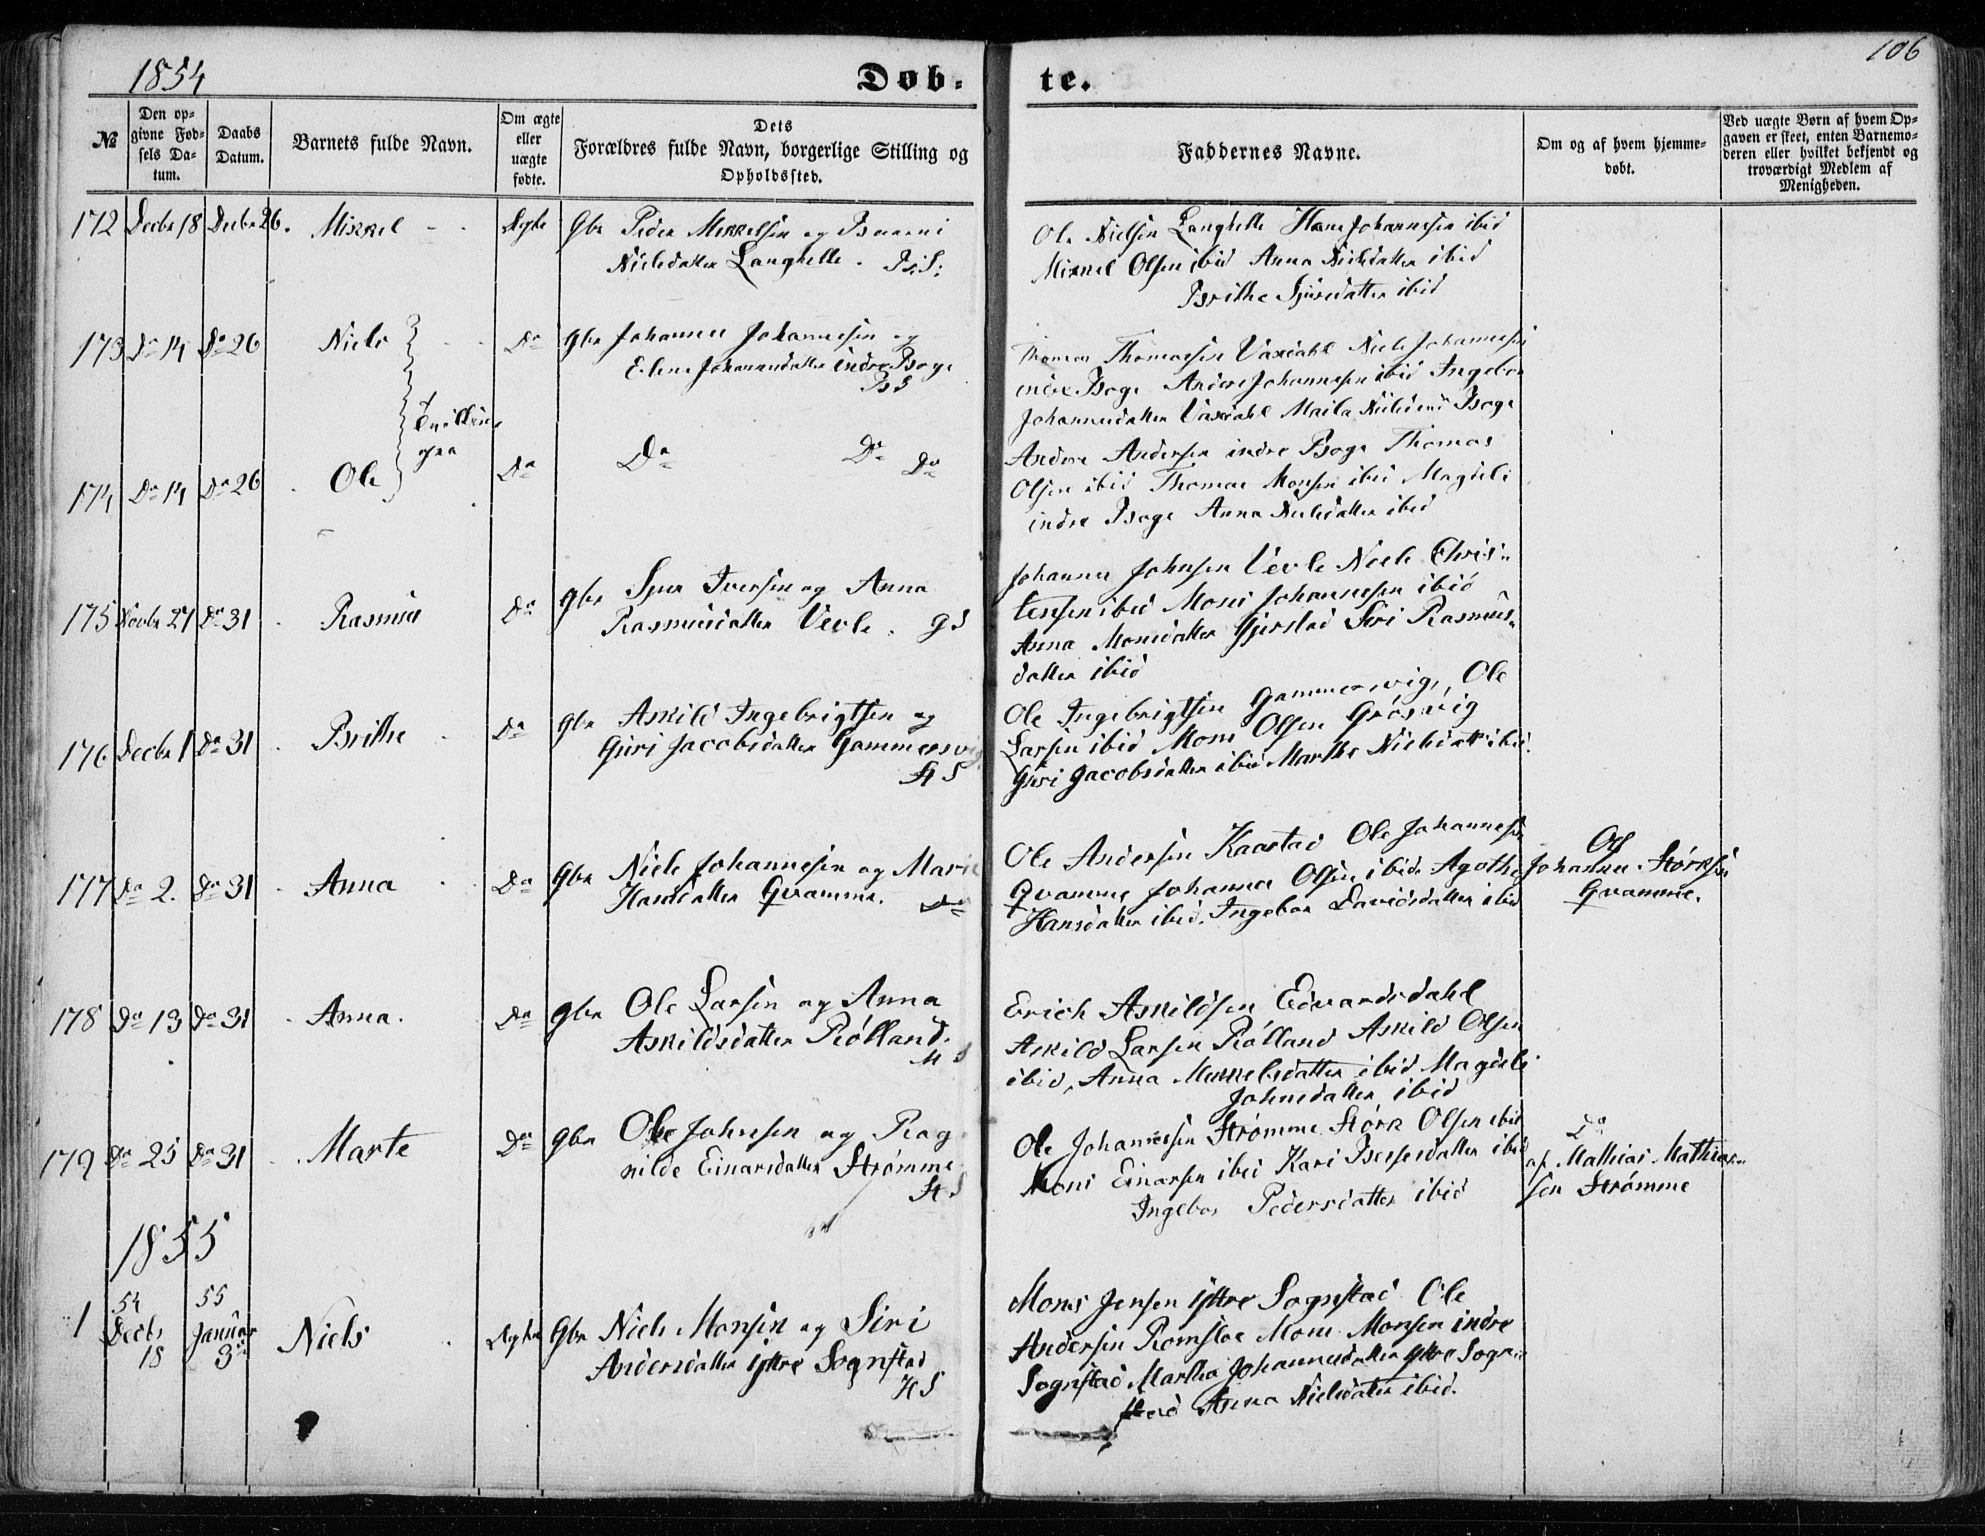 1854
Døb-
te.
106
№
Den op-
givne Fød-
sels Da-
tum.
Daabs
Datum.
Barnets fulde Navn.
Om ægte
eller
uægte
fødte.
Dets
Forældres fulde Navn, borgerlige Stilling og
Opholdssted.
Faddernes Navne.
Om og af hvem hjemme-
døbt.
Ved uægte Børn af hvem Op-
gaven er skeet, enten Barnemo-
deren eller hvilket bekjendt og
troværdigt Medlem af
Menigheden.
172 Decbr 18 Decbr 26. Mikkel Ægte Gbr Peder Mikkelsen og
Nielsdatter Langhelle.
Ole Nielsen Langhelle Hans Johannesen ibid
Mikkel Olsen ibid Anna Nielsdatter ibid
Brithe Sjursdatter ibid
173 Do 14 Do 26 Niels Do Gbr Johannes Johannesen og
indre Boge
BS
Thomas Thomassen Vaxdahl Niels Johannesen
indre Boge Anders Johannesen ibid Ingebor
Johannesdatter Vaxdahl Nielsd Boge
Tvillinger
174 Do 14 Do 26 Ole Do Do Do Do
Anders Andersen indre Boge Thomas
Olsen ibid Thomas Monsen ibid Magdeli
indre Boge Anna Nielsdatter ibid
175 Novbr 27 Do 31 Rasmus Do Gbr Sjur Iversen og Anna
Rasmusdatter Vevle. GS
Johannes Johnsen Vevle Niels Chris-
tensen ibid Mons Johannesen ibid
Anna Monsdatter Gjerstad Siri Rasmus-
datter ibid
176 Decbr 1 Do 31 Brithe Do Gbr Askild Ingebrigtsen og
Guri Jacobsdatter Gammersvig
StS
Ole Ingebrigtsen Gammersvig, Ole
Larsen ibid Mons Olsen Grøsvig
Guri Jacobsdatter ibid Marthe Nielsdatt ibid.
177 Do 2. Do 31 Anna Do Gbr Niels Johannesen og Mari
Hansdatter Qvamme. Do
Ole Andersen Kaarstad Ole Johannesen
Qvamme Johannes Olsen ibid. Agothe
Hansdatter ibid. Ingebor Davidsdatter ibid
Johannes Størksen
Qvamme.
178 Do 13 Do 31 Anna. Do Gbr Ole Larsen og Anna
Askildsdatter Rølland.
Erich Askildsen Edvardsdahl
Askild Larsen Rølland Askild Olsen
ibid, Anna Mikkelsdatter ibid Magdeli
Johnsdatter ibid
179 Do 25 Do 31 Marte Do Gbr Ole Johnsen og Rag-
nilde Einarsdatter Strømme
StS
Ole Johannesen Strømme Størk Olsen ibid
Mons Einarsen ibid Kari ibid
Ingebor Pedersdatter ibid
Do
af Mathias Mathias-
sen Strømme
1855
1 54 Decbr 18 55 Januar 3 Niels Ægte Gbr Niels Monsen og Siri
Andersdatter yttre Sognstad
HS
Mons Jensen yttre Sognstad Ole
Andersen Romsloe Mons Monsen indre
Sognstad Martha Johannesdatter yttre Sogn-
stad Anna Nielsdatter ibid.